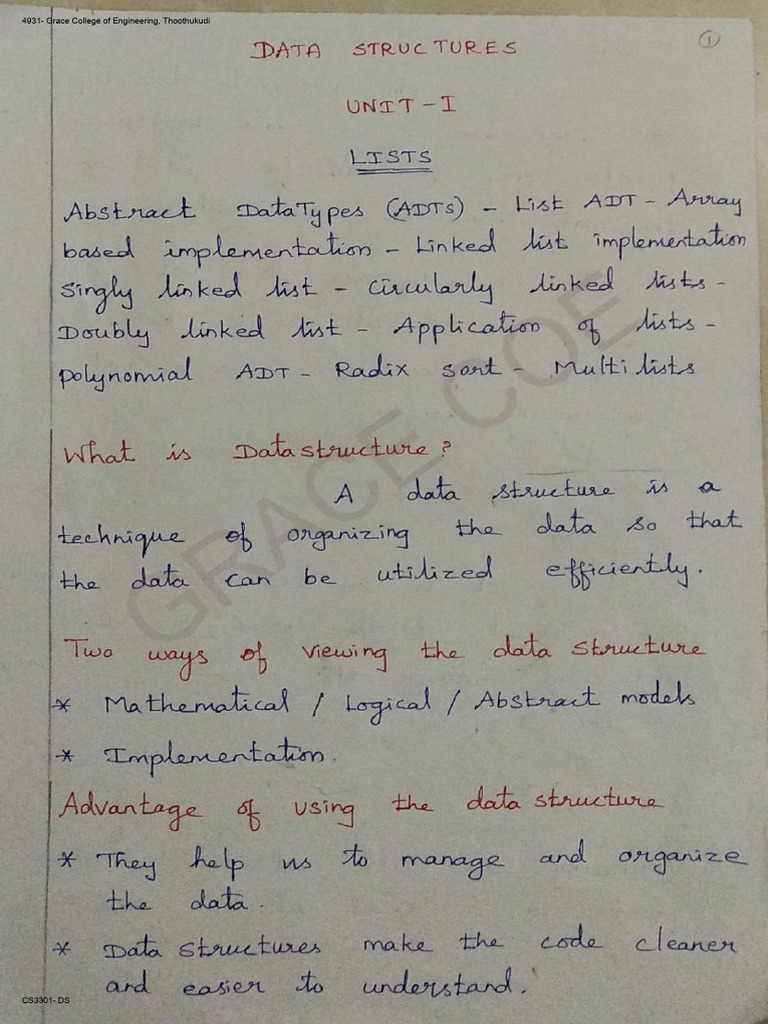 4931- Grace College of Engineering, Thoothukudi
1
DATA STRUCTURES
UNIT - I
LISTS
Abstract DataTypes (ADTs) - List ADT - Array
based implementation - Linked list implementation
Singly linked list - Circularly linked lists -
Doubly linked list - Application of lists -
Polynomial ADT - Radix Sort - Multi lists
What is Datastructure?
A data structure is a
technique of organizing the data so that
the data can be utilized efficiently.
Two ways of viewing the data structure
* Mathematical / Logical / Abstract models
* Implementation.
Advantage of using the data structure
* They help us to manage and organize
the data.
* Data structures make the code cleaner
and easier to understand.
GRACE COE
CS3301- DS